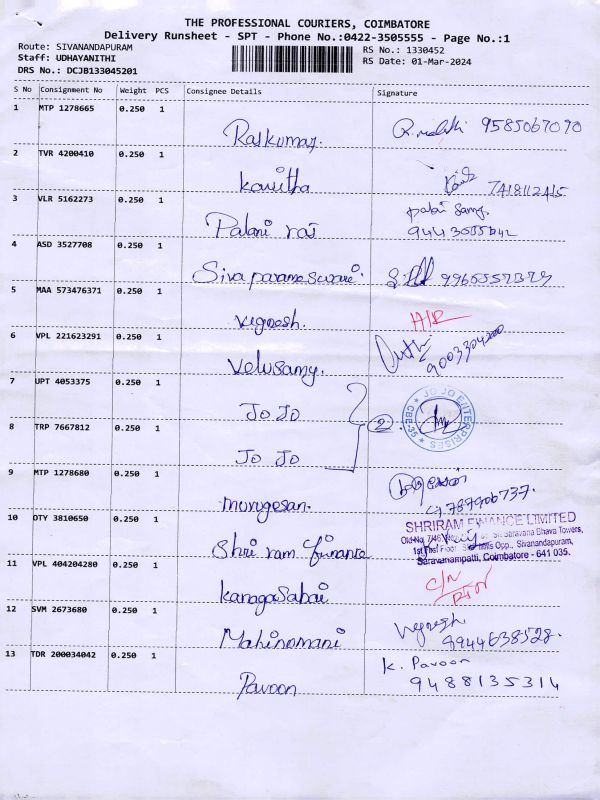 THE PROFESSIONAL COURIERS, COIMBATORE
Delivery Runsheet - SPT - Phone No.:0422-3505555 - Page No.:1
Route: SIVANANDAPURAM
Staff: UDHAYANITHI
DRS No.: DCJB133045201
RS No.: 1330452
RS Date: 01-Mar-2024
S No Consignment No Weight PCS Consignee Details Signature
1 MTP 1278665 0.250 1 Rajkumar. 9585067070
2 TVR 4200410 0.250 1 Kavitha 7418112415
3 VLR 5162273 0.250 1 Palani raj palani samy.
4 ASD 3527708 0.250 1 Siva parameswari.
5 MAA 573476371 0.250 1 Vignesh.
6 VPL 221623291 0.250 1 Velusamy. 9003304200
7 UPT 4053375 0.250 1 JO JO
8 TRP 7667812 0.250 1 JO JO 2. JO JO ENTERPRISES CBE-35
9 MTP 1278680 0.250 1 murugesan.
10 DTY 3810650 0.250 1 Shri ram finance SHRIRAM FINANCE LIMITED
Sri Saravana Bhava Towers,
1st Floor Opp., Sivanandapuram,
Saravanampatti, Coimbatore - 641 035.
11 VPL 404204280 0.250 1 Kanagasabai
12 SVM 2673680 0.250 1 Mahinomani Vignesh 9944638528.
13 TDR 200034042 0.250 1 Pavoon K. Pavoon
9488135314